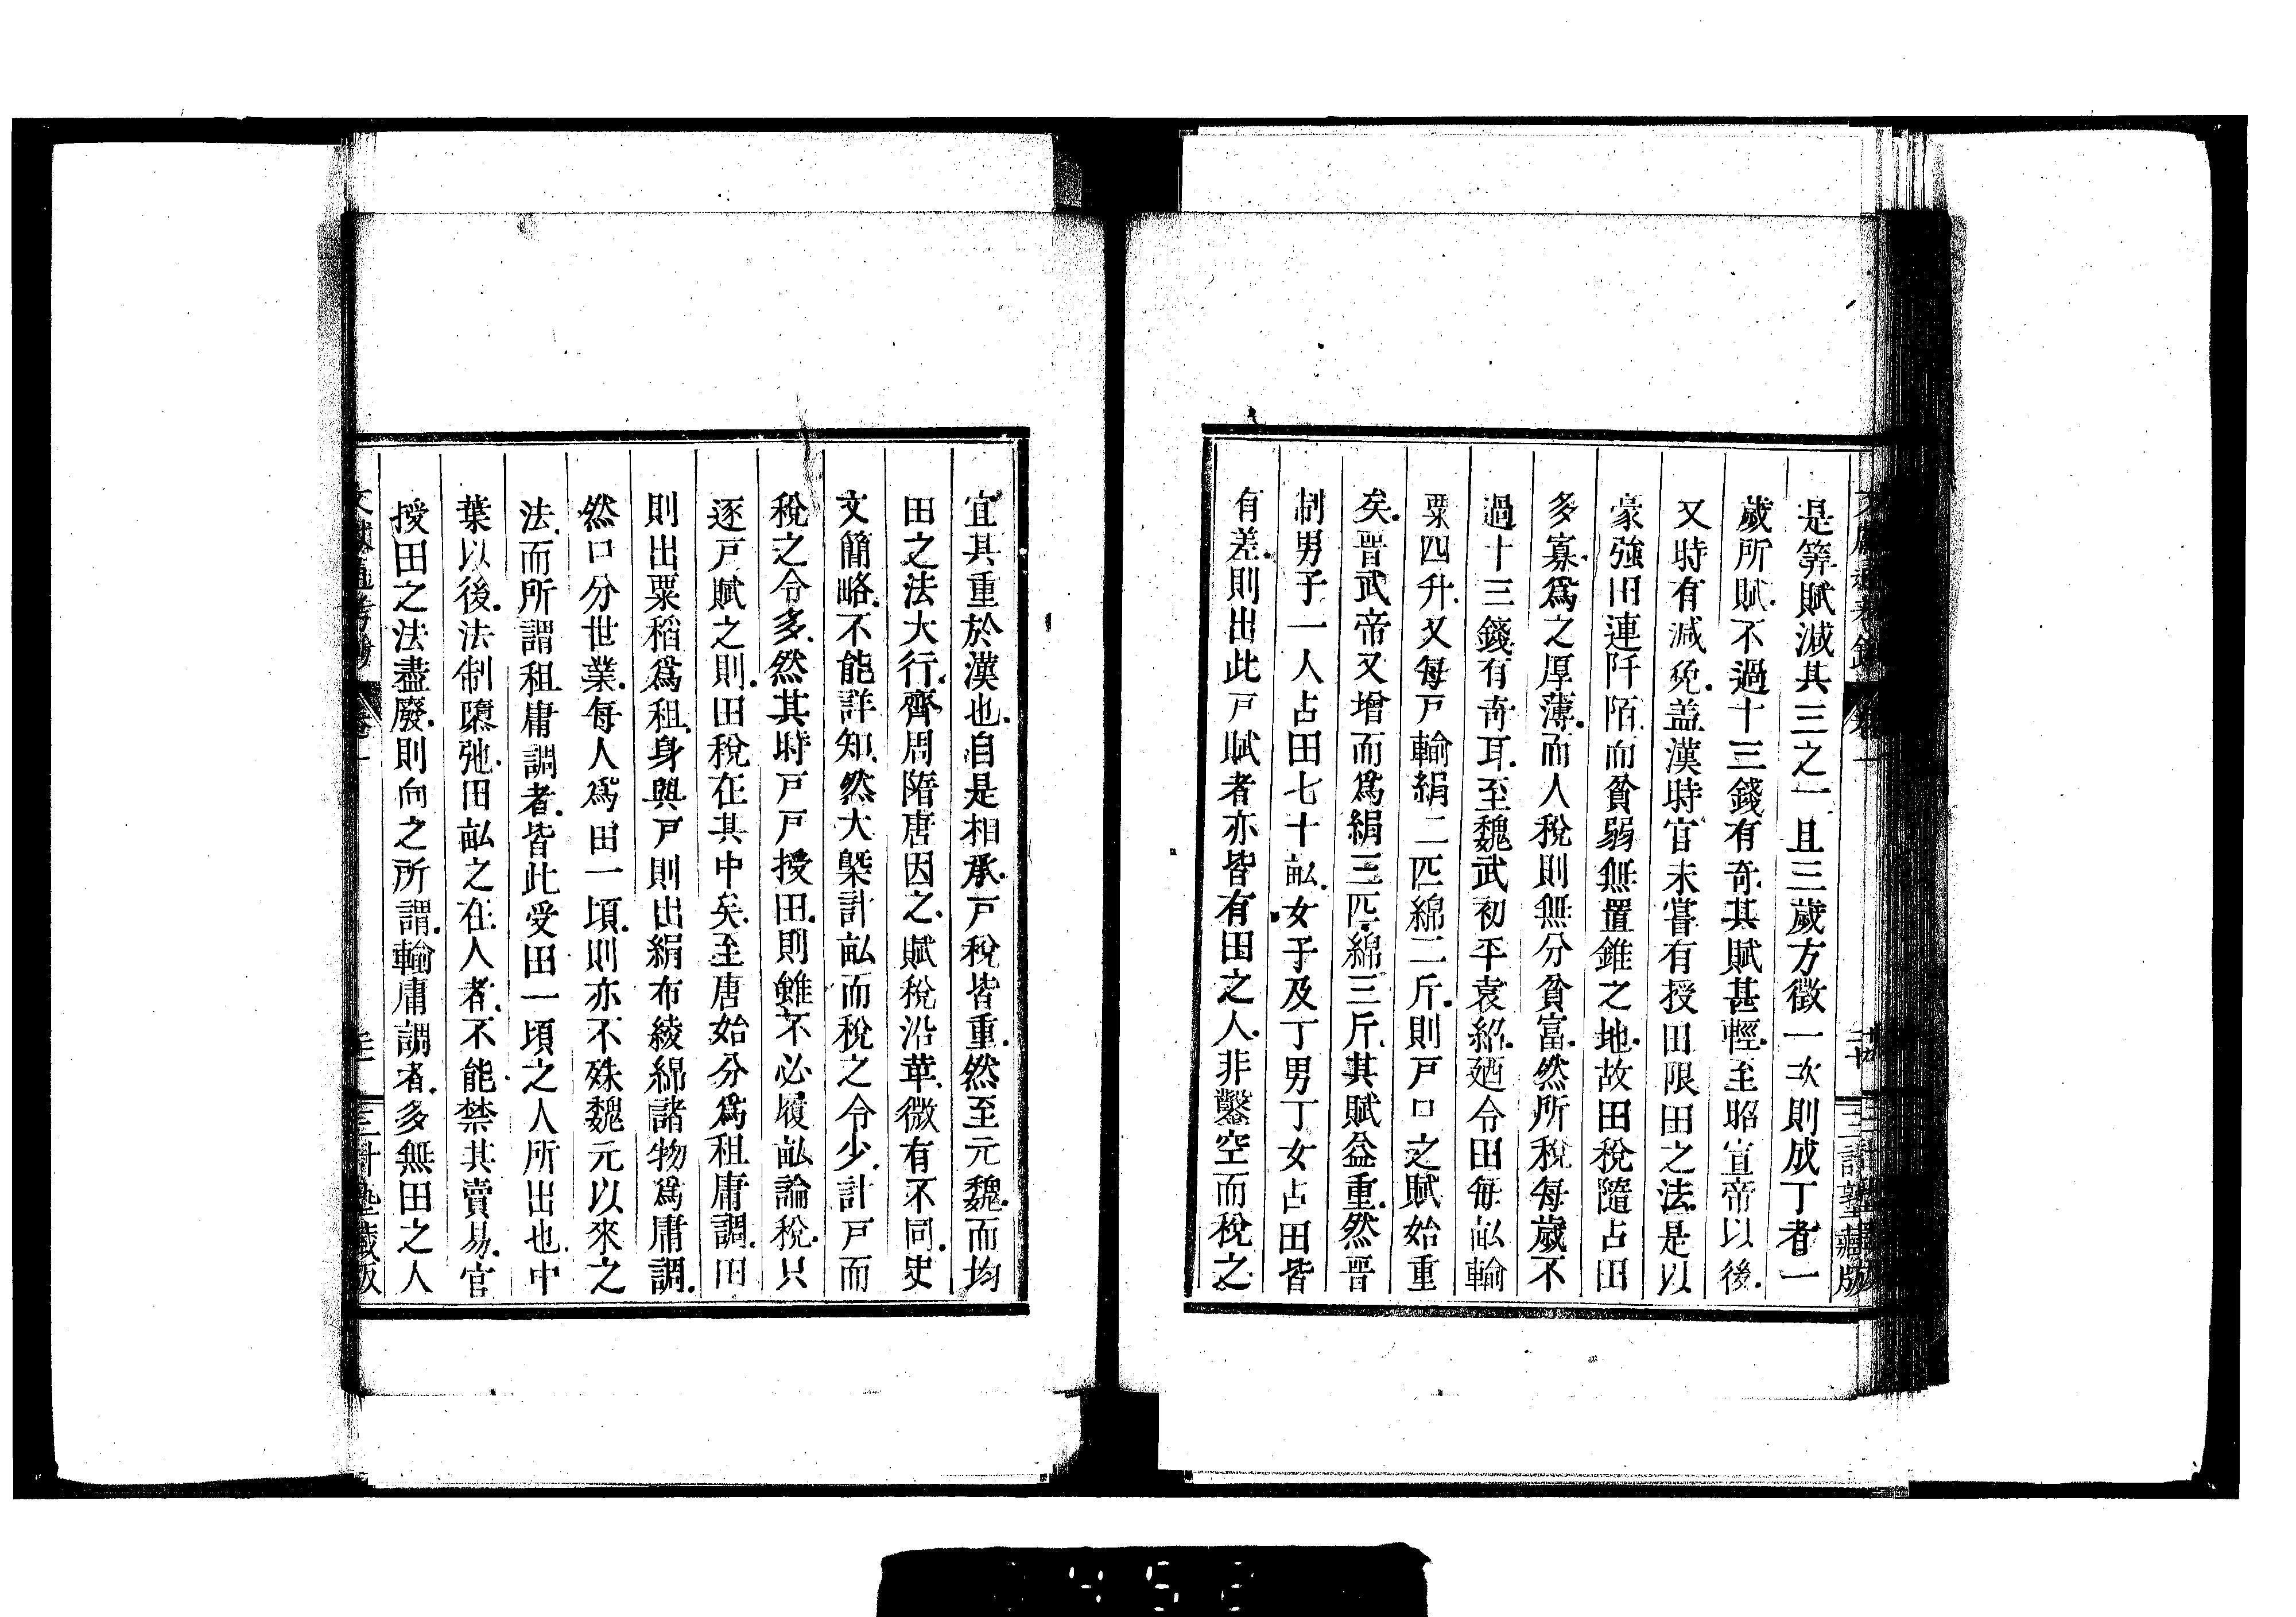 是筭賦減其三之一且三歲方徵一次則成丁者一
歲所賦不過十三錢有奇其賦甚輕至昭宣帝以後
又時有減免盖漢時官未嘗有授田限田之法是以
豪強田連阡陌而貧弱無置錐之地故田稅隨占田
多寡爲之厚薄而人稅則無分貧富然所稅每歲不
過十三錢有奇耳至魏武初平袁紹廼令田每畆輸
粟四升又每戸輸絹二匹綿二斤則戸口之賦始重
矣晉武帝又增而爲絹三匹綿三斤其賦益重然晉
制男子一人占田七十畆女子及丁男丁女占田皆
有差則出此戸賦者亦皆有田之人非鑿空而稅之
宜其重於漢也自是相承戸稅皆重然至元魏而均
田之法大行齊周隋唐因之賦稅沿革微有不同史
文簡略不能詳知然大槩計畆而稅之令少計戸而
稅之令多然其時戸戸授田則雖不必履畆論稅只
逐戸賦之則田稅在其中矣至唐始分爲租庸調田
則出粟稻爲租身與戸則出絹布綾綿諸物爲庸調
然口分世業每人爲田一頃則亦不殊魏元以來之
法而所謂租庸調者皆此受田一頃之人所出也中
葉以後法制隳弛田畆之在人者不能禁其賣易官
授田之法盡廢則向之所謂輸庸調者多無田之人
三計塾藏版